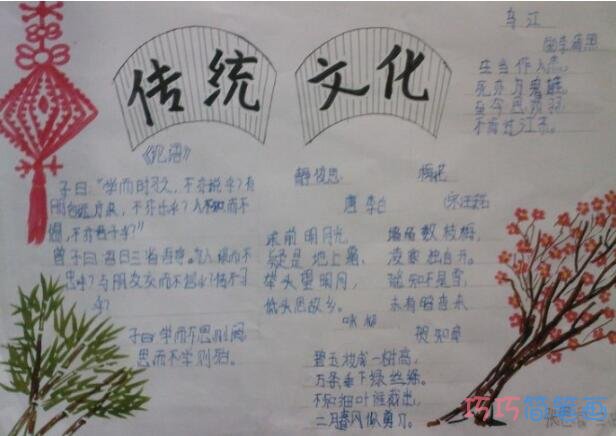 传统 文化
乌江
李清照
生当作人杰,
死亦为鬼雄。
至今思项羽,
不肯过江东。
《论语》
子曰:"学而时习之,不亦说乎?有
朋自远方来,不亦乐乎?人不知而不
愠,不亦君子乎?"
曾子曰:
不忠乎?与朋友交而不信乎?传不习
乎?
子曰学而不思则罔
思而不学则殆。
静夜思
唐 李白
床前明月光,
疑是地上霜。
举头望明月,
低头思故乡。
梅花
宋王安石
墙角数枝梅,
凌寒独自开。
遥知不是雪,
咏柳
贺知章
碧玉妆成一树高,
万条垂下绿丝绦。
不知细叶谁裁出,
二月春风似剪刀。
巧巧简笔画